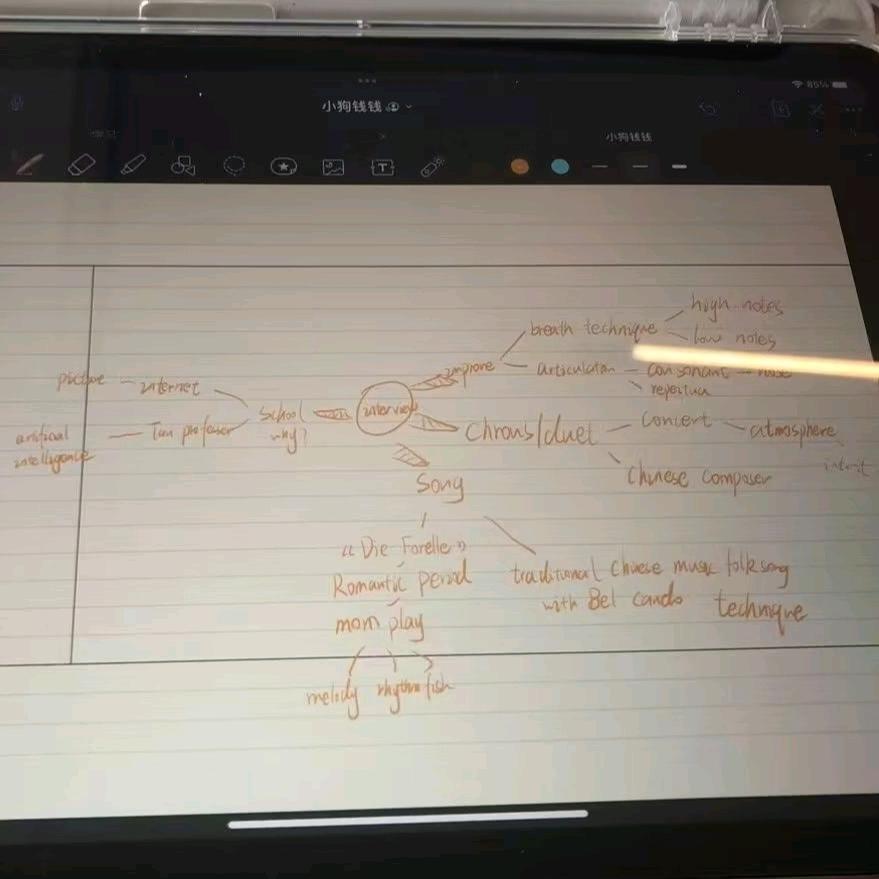 小狗钱钱
85%
小狗钱钱
T
high notes
breath technique
low notes
improve
articulation
consonant
picture
internet
School
why?
interview
Tim professor
artificial
intelligence
Chrous/duet
concert
atmosphere
Chinese composer
Song
《Die Forelle》
Romantic period
mom play
melody rhythm fish
traditional Chinese music folk song
with Bel Cando technique